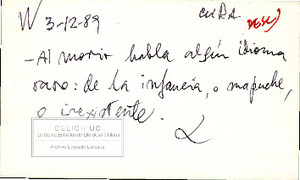 W 3-12-89
CURA
DESU
- Al morir habla algún idioma
raro: de la infancia, o mapuche,
o inexistente.
CELICH UC
Centro de Estudios de Literatura Chilena